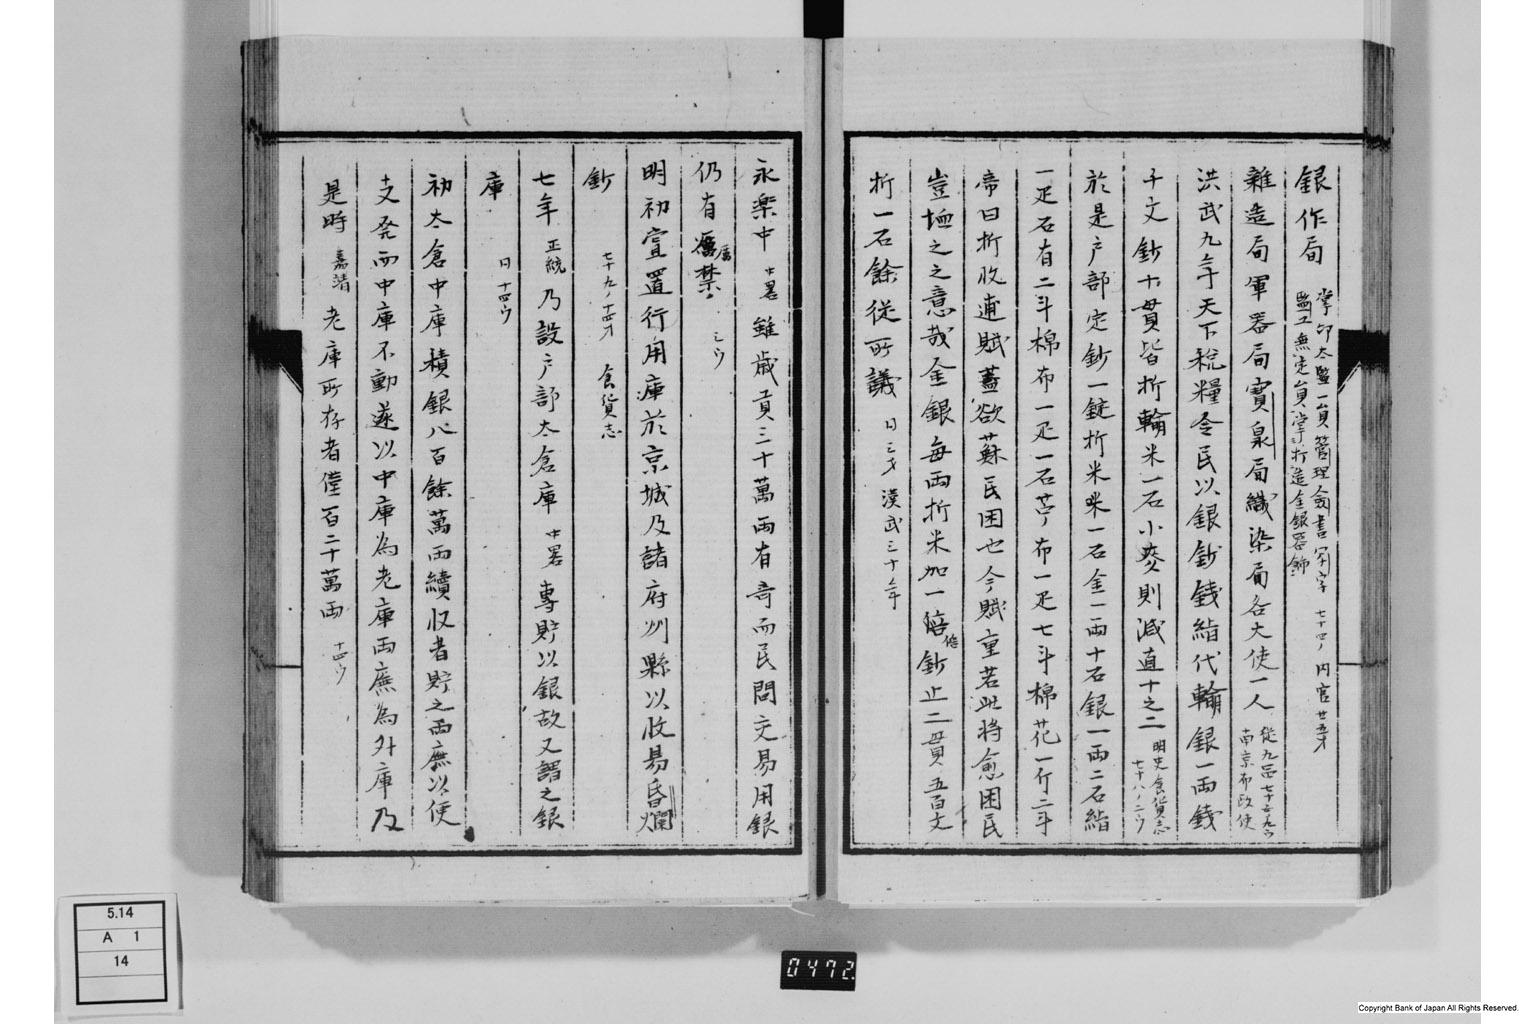 銀作局 掌印太監一員管理僉書寫字
監工無定員掌打造金銀器飾 七十四ノ内官 廿五才
雜造局軍器局寳泉局織染局各大使一人 從九品 七十五ノ九ウ
南京布政使
洪武九年天下稅糧令民以銀鈔錢絹代輸銀一兩錢
千文鈔十貫皆折輸米一石小麥則減直十之二 明史食貨志
七十八ノ二ウ
於是户部定鈔一錠折米一石金一兩十石銀一兩二石絹
一疋石有二斗棉布一疋一石苧布一疋七斗棉花一斤二斗
帝曰折收逋賦蓋欲蘇民困也今賦重若此將愈困民
豈恤之之意哉金銀每兩折米加一倍鈔止二貫五百文
折一石餘從所議 仝三才 洪武三十年
永樂中 中畧 雖歲貢三十萬兩有奇而民間交易用銀
仍有厲禁 三ウ
明初嘗置行用庫於京城及諸府州縣以收易昏爛
鈔 七十九ノ十四才 食貨志
七年 正統 乃設户部太倉庫 中畧 專貯以銀故又謂之銀
庫 仝十四ウ
初太倉中庫積銀八百餘萬兩續收者貯之兩廡以便
支発而中庫不動遂以中庫為老庫兩廡為外庫及
是時 嘉靖 老庫所存者僅百二十萬兩 十四ウ
5.14
A 1
14
0472.
Copyright Bank of Japan All Rights Reserved.